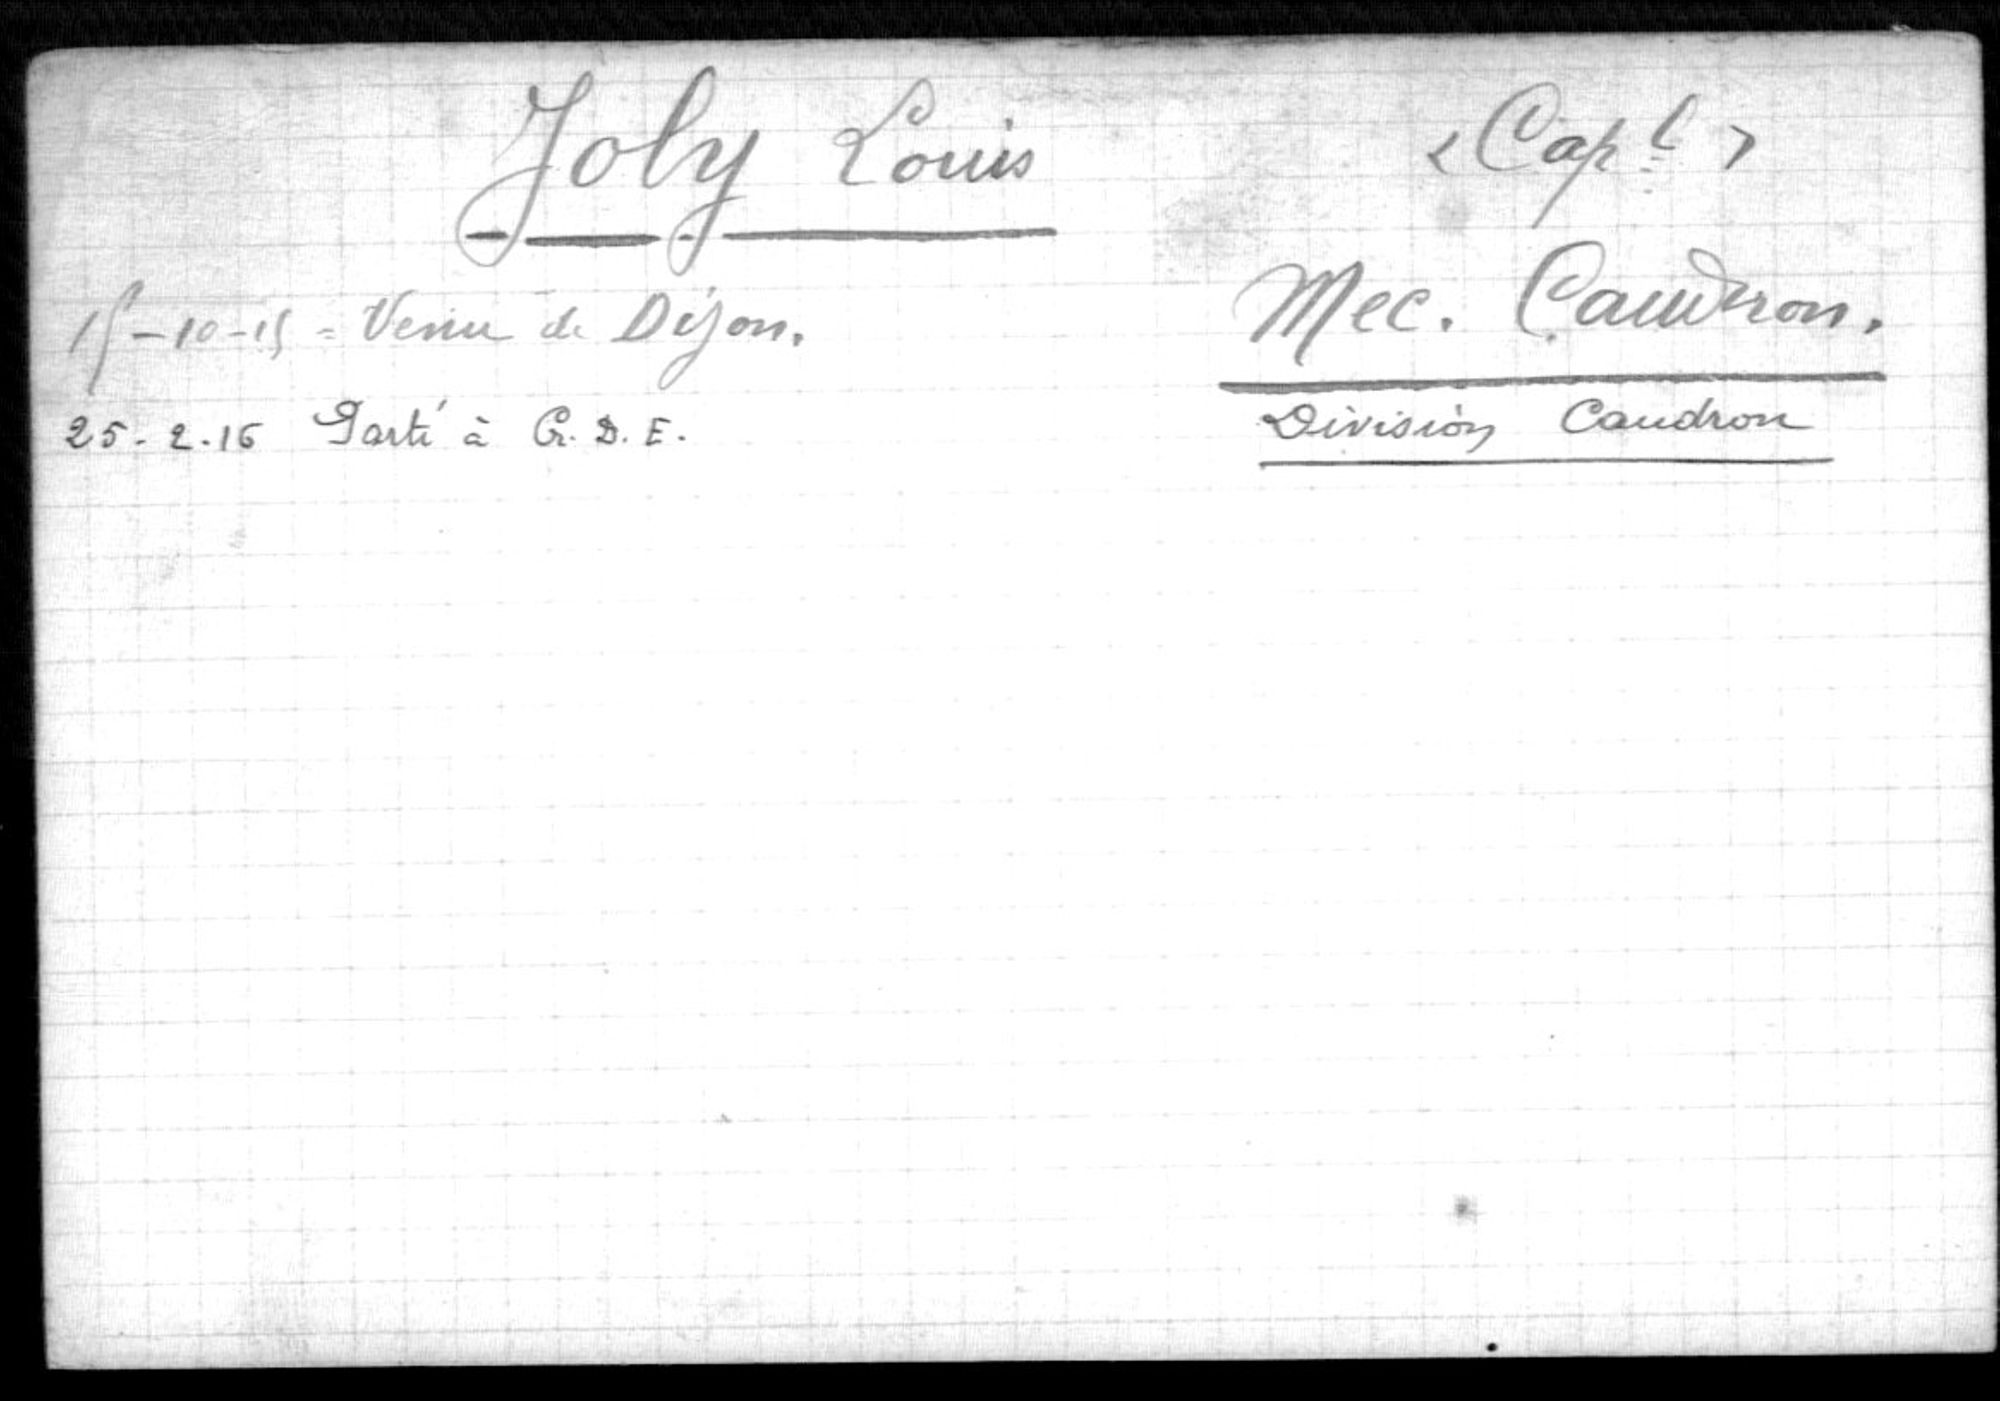 Joly Louis
< Capl >
15-10-15 = Venu de Dijon.
Mec. Caudron.
25-2-16 Parti à G. D. E.
Division Caudron